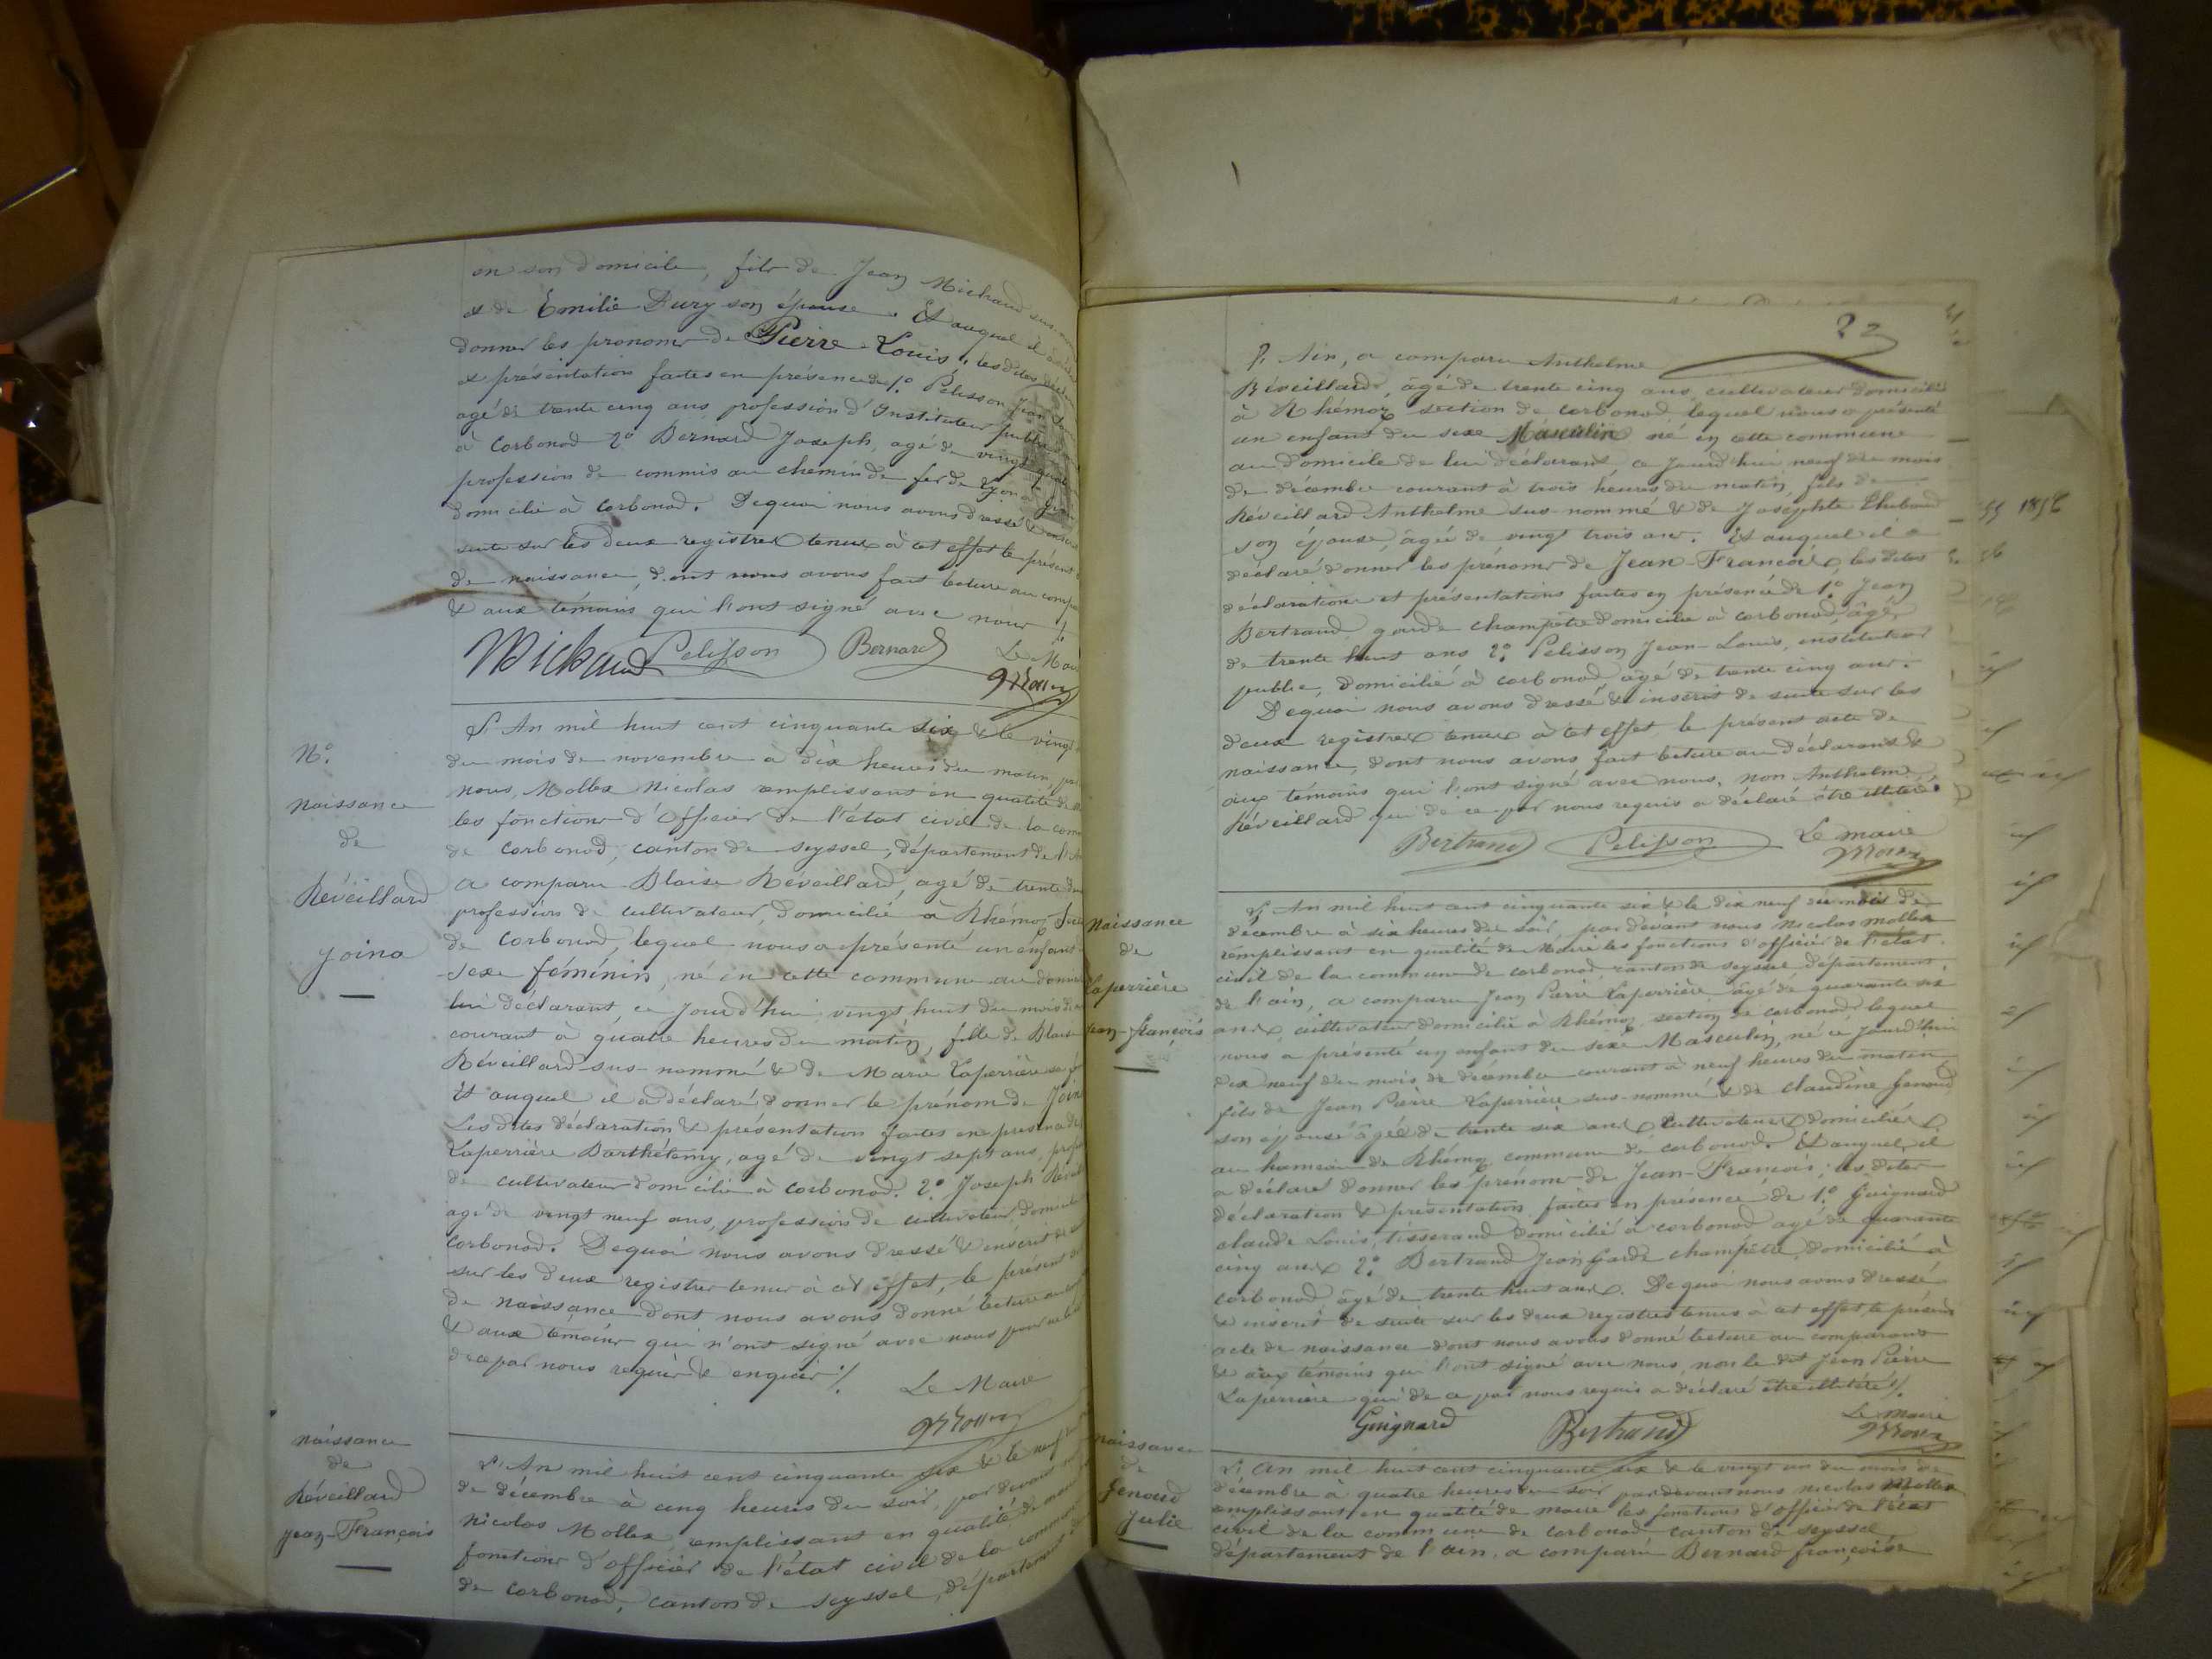 en son domicile, fils de Jean Michaud
et de Emilie Dury son épouse. Et auquel il a
donner les prenoms de Pierre-Louis, les dites
et présentation faites en présence de 1° Pelisson Jean
agé de trente cinq ans profession d'Instituteur public
à Corbonod 2° Bernard Joseph, agé de vingt
profession de commis au chemin de fer de Lyon à
domicilié à Corbonod. Dequoi nous avons dressé &
suite sur les deux registres tenus à cet effet le présent
de naissance, dont nous avons fait lecture au
& aux témoins qui l'ont signé avec nous
Michaud Pelisson Bernard Le
N°
naissance
de
Réveillard
Joina
L'An mil huit cent cinquante six & le vingt
du mois de novembre à dix heures du matin, par
nous, Mollex Nicolas remplissant en qualité de
les fonctions d'officier de l'état civil de la
de Corbonod, canton de Seyssel, département de l'
a comparu Blaise Réveillard, agé de trente
profession de cultivateur, domicilié à Rhémoz
de Corbonod, lequel nous a présenté un enfant
sexe féminin, né en cette commune au
lui déclarant, ce jourd'hui vingt huit du mois de
courant à quatre heures du matin, fille de Blaise
Réveillard sus-nommé & de Marie Laperrière sa
Et auquel il a déclaré donner le prénom de
Les dites déclaration & présentation faites en présence de
Laperrière Barthélemy, agé de vingt sept ans,
de cultivateur domicilié à Corbonod. 2° Joseph
agé de vingt neuf ans, profession de cultivateur
Corbonod. Dequoi nous avons dressé & inscrit de
sur les deux registres tenus à cet effet, le présent
de naissance dont nous avons donné lecture au
& aux témoins qui n'ont signé avec nous pour
de ce par nous requis & enquis ./.
Le Maire
Mollex
naissance
de
Réveillard
Jean-François
L'An mil huit cent cinquante six & le neuf
de décembre à cinq heures du soir, par devant
Nicolas Mollex remplissant en qualité de maire
fonctions d'officier de l'état civil de la commune
de Corbonod, canton de Seyssel, département
22
l'Ain, a comparu Anthelme
Réveillard, âgé de trente cinq ans cultivateur domicilié
à Rhémoz section de Corbonod lequel nous a présenté
un enfant du sexe Masculin né en cette commune
au domicile de lui déclarant, ce jourd'hui neuf du mois
de décembre courant à trois heures du matin, fils de
Réveillard Anthelme sus-nommé & de Josephte Thiboud
son épouse, âgée de vingt trois ans. Et auquel il a
déclaré donner les prénoms de Jean-François, les dites
déclaration et présentations faites en présence de 1° Jean
Bertrand garde champêtre domicilié à Corbonod, âgé
de trente huit ans 2° Pelisson Jean-Louis, instituteur
public, domicilié à Corbonod, âgé de trente cinq ans.
Dequoi nous avons dressé & inscrit de suite sur les
deux registres tenus à cet effet, le présent acte de
naissance, dont nous avons fait lecture au déclarant &
aux témoins qui l'ont signé avec nous, non Anthelme
Réveillard qui de ce par nous requis a déclaré être illitéré.
Bertrand Pelisson Le maire
Mollex
naissance
de
Laperrière
Jean-françois
L'An mil huit cent cinquante six & le dix neuf du mois de
décembre à six heures du soir, par devant nous Nicolas Mollex
remplissant en qualité de Maire les fonctions d'officier de l'état
civil de la commune de Corbonod, canton de Seyssel, département
de l'ain, a comparu Jean Pierre Laperrière âgé de quarante six
ans, cultivateur domicilié à Rhémoz, section de Corbonod, lequel
nous a présenté un enfant du sexe Masculin, né ce jourd'hui
dix neuf du mois de décembre courant à neuf heures du matin
fils de Jean Pierre Laperrière sus-nommé & de Claudine Genoud
son épouse âgée de trente six ans Cultivateurs domiciliés
au hameau de Rhémoz commune de Corbonod. Et auquel il
a déclaré donner les prénoms de Jean-François; les dites
déclaration & présentation faites en présence de 1° Guignard
claude Louis, tisserand domicilié à Corbonod agé de quarante
cinq ans 2° Bertrand Jean Garde champêtre domicilié à
Corbonod âgé de trente huit ans. Dequoi nous avons dressé
& inscrit de suite sur les deux registres tenus à cet effet, le présent
acte de naissance dont nous avons donné lecture au comparant
& aux témoins qui l'ont signé avec nous, non le dit Jean Pierre
Laperrière qui de ce par nous requis a déclaré être illitéré ./.
Guignard Bertrand Le maire
Mollex
naissance
de
Genoud
Julie
L'An mil huit cent cinquante six & le vingt un du mois de
décembre à quatre heures du soir par devant nous Nicolas Mollex
remplissant en qualité de maire les fonctions d'officier de l'état
civil de la commune de Corbonod canton de Seyssel
département de l'ain, a comparu Bernard françoise
1856